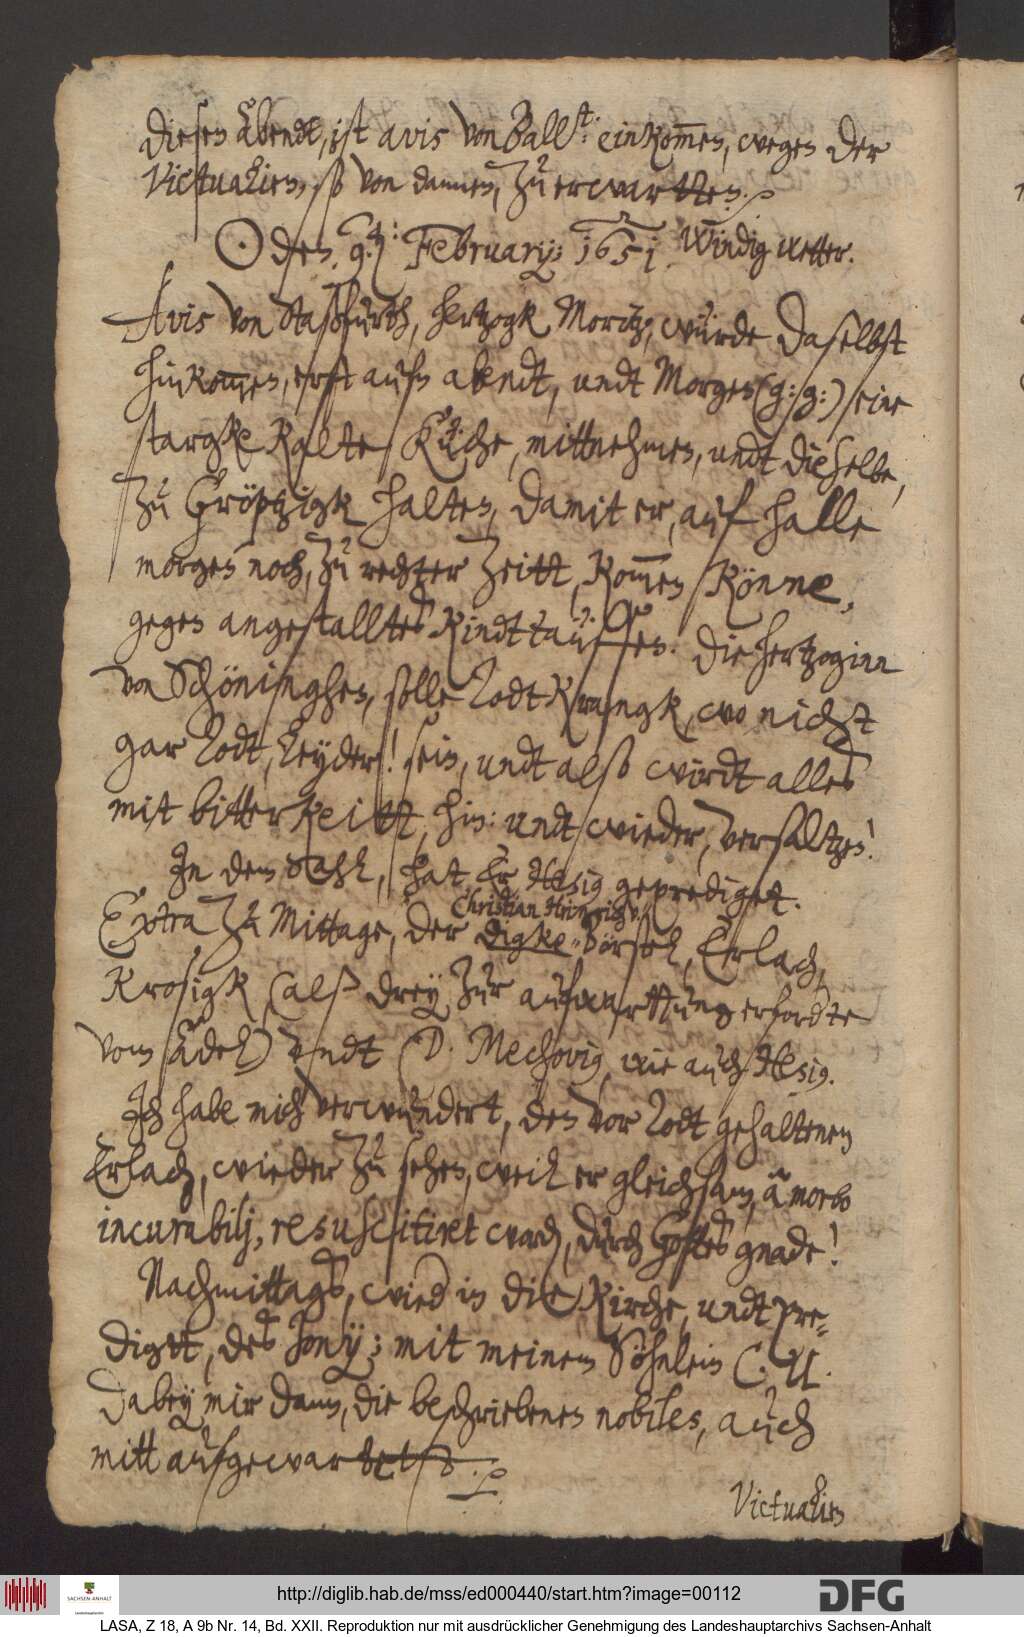 diesen Abendt, ist avis von Ball:st: einkom̅en, wegen der
Victualien, so von dannen, zu erwartten.
⊙ den: 9.ten: February; 1651. Windig wetter.
Avis von Staßfurth, hertzogk Moritz, würde daselbst
hinkom̅en, erst aufn abendt, undt Morgen (g: g:) seine
stargke kalte Küche, mittnehmen, undt dieselbe,
zu Gröptzigk halten, damit er, auf Halle
morgen noch, zu rechter zeitt, kom̅en könne,
gegen angestalltes kindttäuffen. Die Hertzoginn
von Schöninghen, solle Todtkrangk, wo nicht
gar Todt, leyder! sein, undt also wirdt alles
mit bitterkeitt, hin: undt wieder, versaltzen!
In dem Sahl, hat Er Hesig geprediget.
Extra zu Mittage, der Christian Heinrich von
Digke Börstel, Erlach,
Krosigk (alß drey zur aufwarttung erfordte
vom Adel) undt D. Mechovig, wie auch Hesig.
Ich habe mich verwundert, den vor Todt gehaltenen
Erlach, wieder zu sehen, weil er gleichsam, à morbo
incurabilj, resuscitiret ward, durch Gottes gnade!
Nachmittags, wied in die Kirche, undt pre-
digtt, des Jonij; mit meinem Söhnlein C. U.
Dabey mir dann, die beschriebenen nobiles, auch
mitt aufgewartet
Victualien
http://diglib.hab.de/mss/ed000440/start.htm?image=00112
SACHSEN-ANHALT
Landeshauptarchiv
DFG
LASA, Z 18, A 9b Nr. 14, Bd. XXII. Reproduktion nur mit ausdrücklicher Genehmigung des Landeshauptarchivs Sachsen-Anhalt